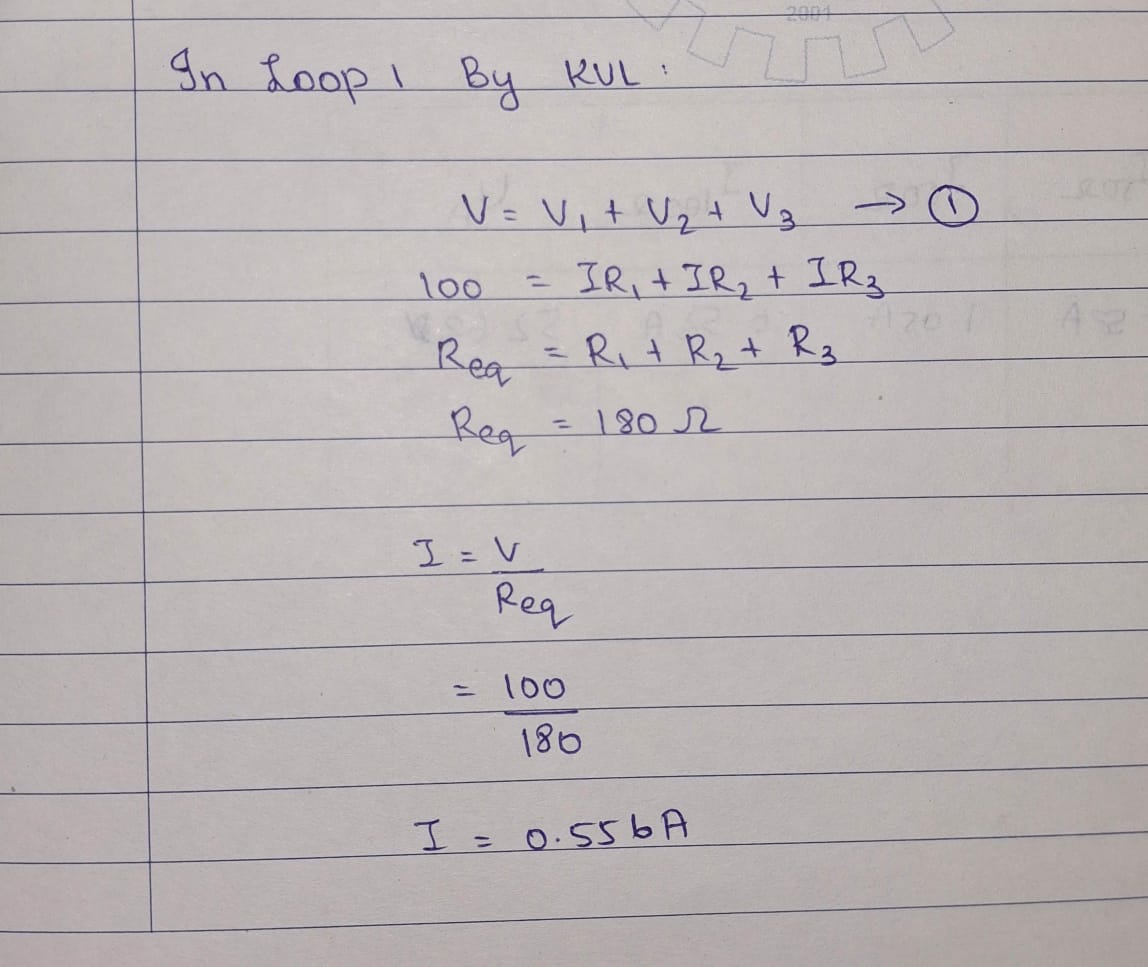 2001
In Loop 1 By KVL :
V = V₁ + V₂ + V₃ → ①
100 = IR₁ + IR₂ + IR₃
Req = R₁ + R₂ + R₃
Req = 180 Ω
I = V
Req
= 100
180
I = 0.556A